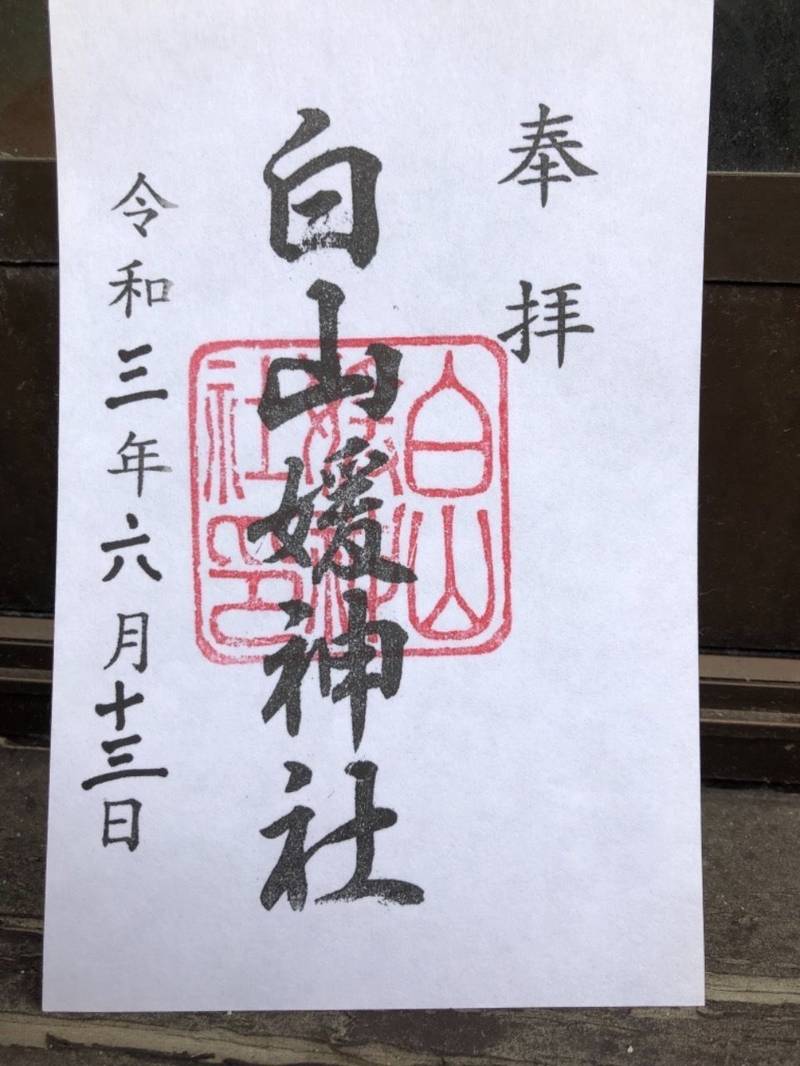 奉拝
白山媛神社
白山媛神社印
令和三年六月十三日